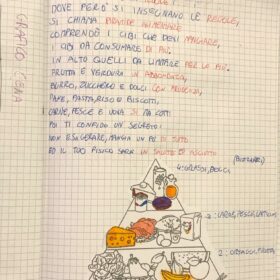 DOVE PERÒ SI INSEGNANO LE REGOLE,
SI CHIAMA PIRAMIDE ALIMENTARE
COMPRENDE I CIBI CHE DEVI MANGIARE,
I CIBI DA CONSUMARE DI PIÙ.
IN ALTO QUELLI DA LIMITARE PER LO PIÙ.
FRUTTA E VERDURA IN ABBONDANZA,
BURRO, ZUCCHERO E DOLCI CON PRUDENZA,
PANE, PASTA, RISO E BISCOTTI,
CARNE, PESCE E UOVA SIA COTTI
POI TI CONFIDO UN SEGRETO:
NON ESAGERARE, MANGIA UN PO' DI TUTTO
ED IL TUO FISICO SARÀ IN SALUTE DI ASCIUTTO
4: GRASSI, DOLCI
3: CARNE, PESCE, LATTICINI
2: ORTAGGI, FRUTTA